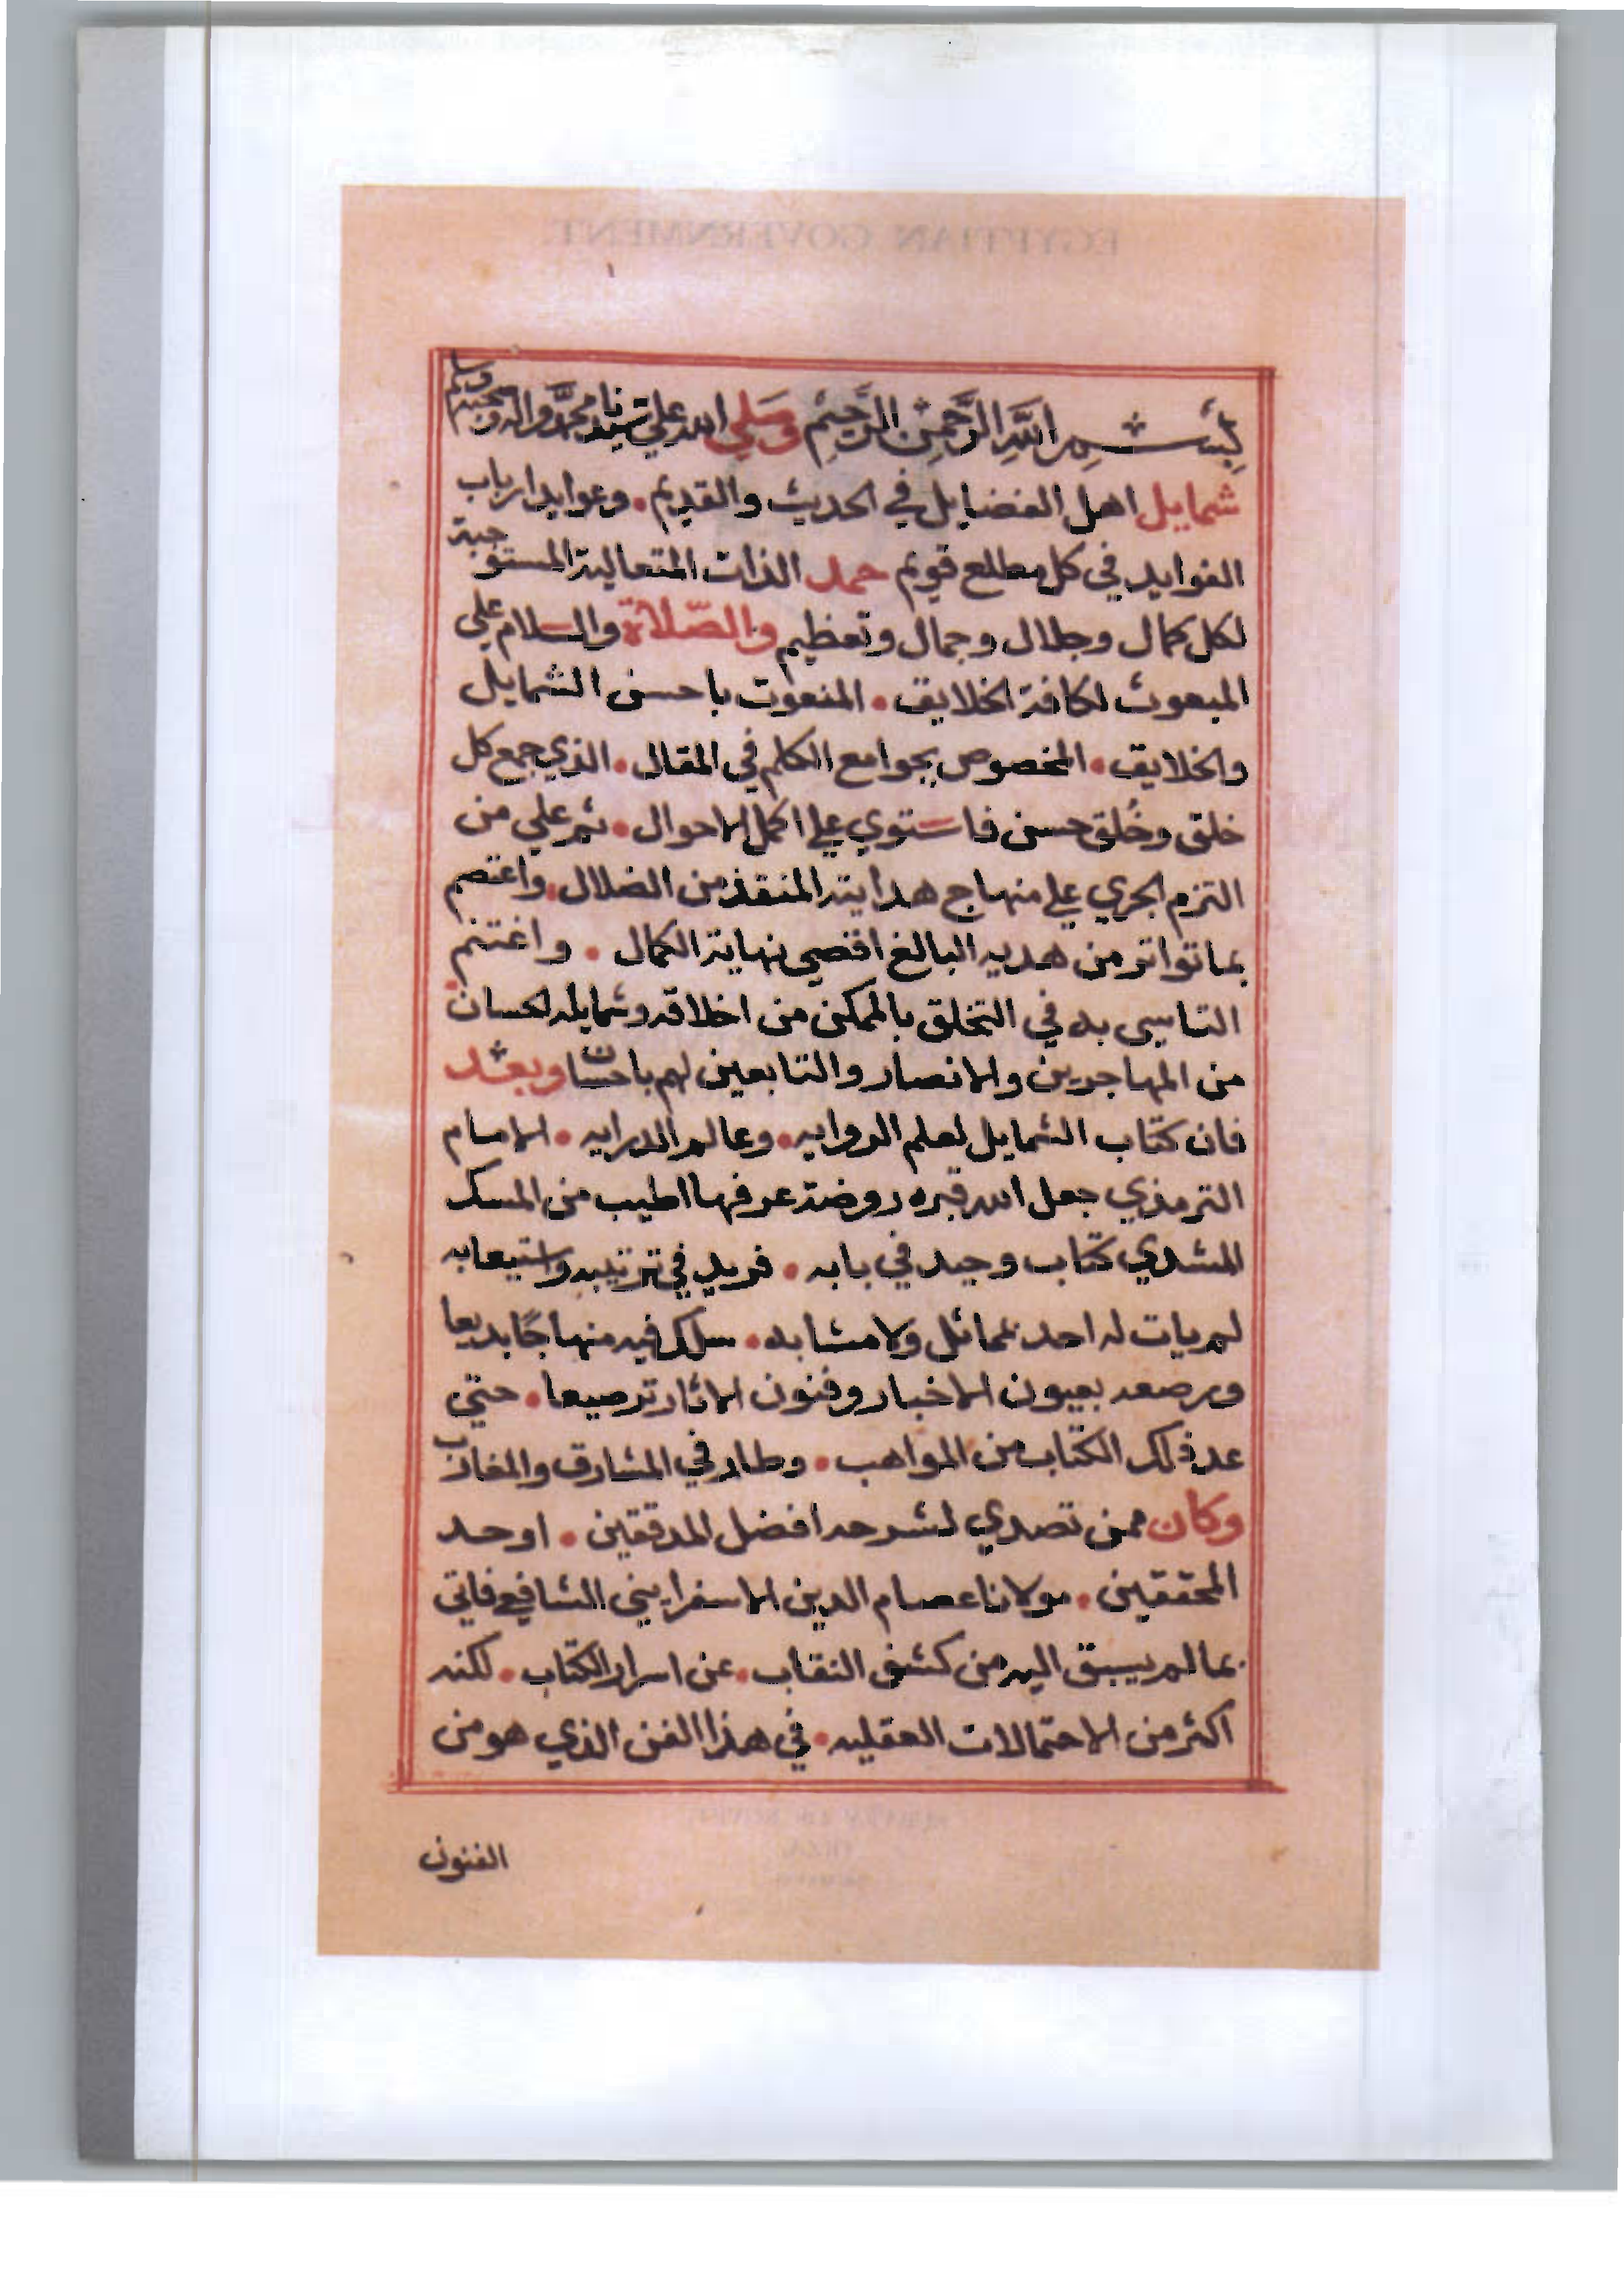 EGYPTIAN GOVERNMENT.
بِسْمِ اللَّهِ الرَّحْمَنِ الرَّحِيْمِ وَصَلي الله علي سيدنا محمد واله وصحبه وسلم
شمايل اهل الفضايل في الحديث والقديم . وعوايد ارباب
الفوايد في كل مطلع قويم حمد الذات المتعالية المستوجبة
لكل كمال وجلال وجمال وتعظيم والصّلاة والسلام علي
المبعوث لكافة الخلايق . المنعوت باحسن الشمايل
والخلايق . المخصوص بجوامع الكلم في المقال . الذي جمع كل
خلق وخُلق حسن فاستوي علي اكمل الاحوال . ثم علي من
التزم الجري علي منهاج هدايته المنقذ من الضلال . واعتصم
بما تواتر من هديه البالغ اقصي نهاية الكمال . واغتنم
التاسي به في التخلق بالممكن من اخلاقه وشمايله الحسان .
من المهاجرين والانصار والتابعين لهم باحسان وبعد
فان كتاب الشمايل لعلم الروايه . وعالم الدرايه . الامام
الترمذي جعل الله قبره روضة عرفها اطيب من المسك
الشذي كتاب وحيد في بابه . فريد في ترتيبه واستيعابه
لم يات له احد بمماثل ولا مشابه . سلك فيه منهاجًا بديعا
ورصعه بعيون الاخبار وفنون الاثار ترصيعا . حتي
عد ذلك الكتاب من المواهب . وطار في المشارق والمغارب
وكان ممن تصدي لشرحه افضل المدققين . اوحد
المحققين . مولانا عصام الدين الاسفرايني الشافعي فاتي
بما لم يسبق اليه من كشف النقاب . عن اسرار الكتاب . لكنه
اكثر من الاحتمالات العقليه . في هذا الفن الذي هو من
الفنون